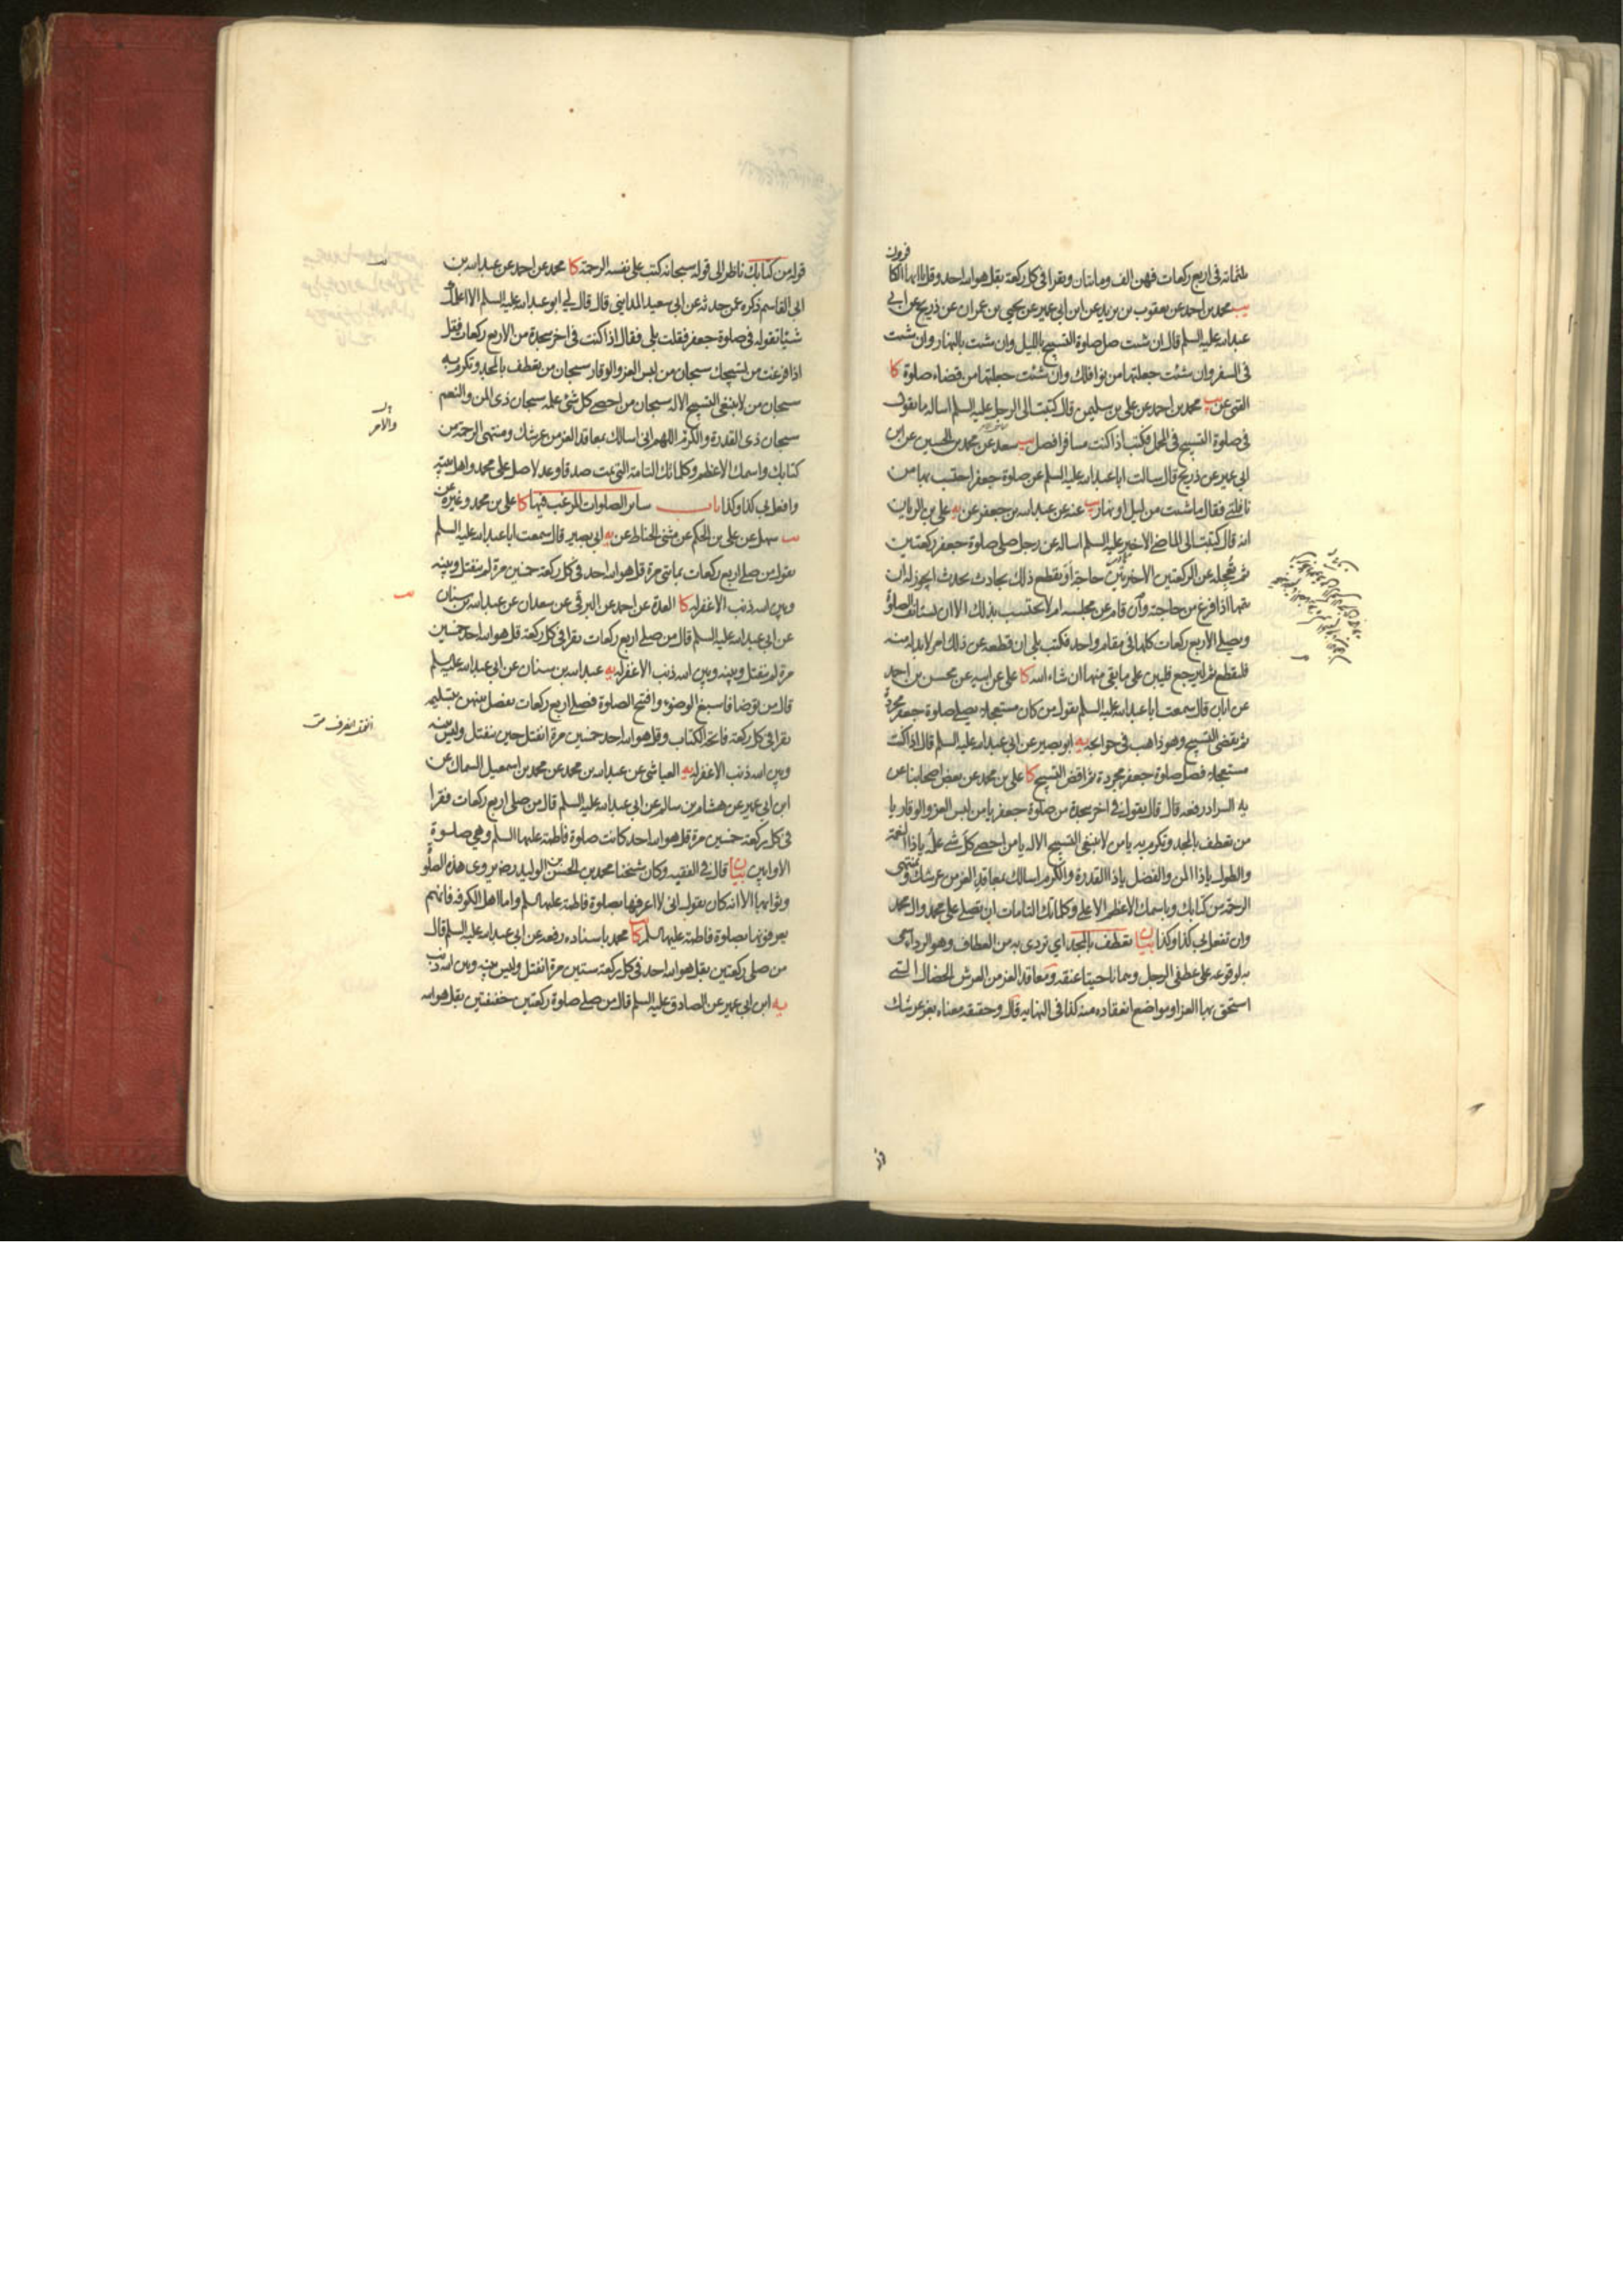 ثلثمائة فى اربع ركعات فهن الف ومايتان ويقرا فى كل ركعة بقل هو الله احد وقل يا ايها الكا
فرون
يب محمد بن احمد عن يعقوب بن يزيد عن ابن ابى عمير عن يحيى بن عمران عن ذريح عن ابى
عبد الله عليه السلم قال ان شئت صل صلوة التسبيح بالليل وان شئت بالنهار وان شئت
فى السفر وان شئت جعلتها من نوافلك وان شئت جعلتها من قضاء صلوة كا
القمى عن يب محمد بن احمد عن على بن سليمن قال كتبت الى الرجل عليه السلم اساله ما يقول
فى صلوة التسبيح فى المحمل فكتب اذا كنت مسافرا فصل يب سعد عن محمد بن الحسين عن ابن
ابى عمير عن ذريح قال سالت ابا عبد الله عليه السلم عن صلوة جعفر احتسب بها من
نافلتى فقال ما شئت من ليل او نهار يب عنه عن عبد الله بن جعفر عن يه على بن الريان
انه قال كتبت الى الماضى الاخير عليه السلم اساله عن رجل صلى صلوة جعفر ركعتين
ثم تعجله عن الركعتين الاخيرتين حاجة او يقطع ذلك بحادث يحدث ايجوز له ان
يتمها اذا فرغ من حاجته وان قام عن مجلسه ام لا يحتسب بذلك الا ان يستانف الصلوة
ويصلى الاربع ركعات كلها فى مقام واحد فكتب بلى ان قطعه عن ذلك امر لا بد له منه
فليقطع ثم ليرجع فليبن على ما بقى منها ان شاء الله كا على عن ابيه عن محسن بن احمد
عن ابان قال سمعت ابا عبد الله عليه السلم يقول من كان مستعجلا يصلى صلوة جعفر مجردة
ثم يقضى التسبيح وهو ذاهب فى حوائجه يه ابو بصير عن ابى عبد الله عليه السلم قال اذا كنت
مستعجلا فصل صلوة جعفر مجردة ثم اقض التسبيح كا على بن محمد عن بعض اصحابنا عن
يه السراد رفعه قال قال يقول فى اخر سجدة من صلوة جعفر يا من لبس العز والوقار يا
من تعطف بالمجد وتكرم به يا من لا ينبغى التسبيح الا له يا من احصى كل شئ علمه يا ذا النعمة
والطول يا ذا المن والفضل يا ذا القدرة والكرم اسالك بمعاقد العز من عرشك ومنتهى
الرحمة من كتابك وباسمك الاعظم الاعلى وكلماتك التامات ان تصلى على محمد وال محمد
وان تفعل بى كذا وكذا بيان تعطف بالمجد اى تردى به من العطاف وهو الرداء سمى
به لوقوعه على عطفى الرجل وهما ناحيتا عنقه ومعاقد العز من العرش الخصال التى
استحق بها العز او مواضع انعقاده منه كذا فى النهايه قال وحقيقة معناه بعز عرشك
قوله من كتابك ناظر الى قوله سبحانه كتب على نفسه الرحمة كا محمد عن احمد عن عبد الله بن
ابى القاسم ذكره عمن حدثه عن ابى سعيد المداينى قال قال لى ابو عبد الله عليه السلم الا اعلمك
شيئا تقوله فى صلوة جعفر فقلت بلى فقال اذا كنت فى اخر سجدة من الاربع ركعات فقل
اذا فرغت من تسبيحك سبحان من لبس العز والوقار سبحان من تعطف بالمجد وتكرم به
سبحان من لا ينبغى التسبيح الا له سبحان من احصى كل شئ علمه سبحان ذى المن والنعم
سبحان ذى القدرة والكرم اللهم انى اسالك بمعاقد العز من عرشك ومنتهى الرحمة من
والامر
كتابك واسمك الاعظم وكلماتك التامة التى تمت صدقا وعدلا صل على محمد واهل بيته
وافعل بى كذا وكذا باب ساير الصلوات المرغب فيها كا على بن محمد وغيره عن
يب سهل عن على بن الحكم عن مثنى الحناط عن يه ابى بصير قال سمعت ابا عبد الله عليه السلم
يقول من صلى اربع ركعات بمائتى مرة قل هو الله احد فى كل ركعة خمسين مرة لم ينفتل وبينه
وبين الله ذنب الا غفر له كا العدة عن احمد عن البرقى عن سعدان عن عبد الله بن سنان
عن ابى عبد الله عليه السلم قال من صلى اربع ركعات يقرا فى كل ركعة قل هو الله احد خمسين
مرة لم ينفتل وبينه وبين الله ذنب الا غفر له يه عبد الله بن سنان عن ابى عبد الله عليه السلم
قال من توضا فاسبغ الوضوء وافتتح الصلوة فصلى اربع ركعات يفصل بينهن بتسليمة
يقرا فى كل ركعة فاتحة الكتاب وقل هو الله احد خمسين مرة انفتل حين ينفتل وليس بينه
وبين الله ذنب الا غفر له يه العياشى عن عبد الله بن محمد عن محمد بن اسمعيل السماك عن
ابن ابى عمير عن هشام بن سالم عن ابى عبد الله عليه السلم قال من صلى اربع ركعات فقرا
فى كل ركعة خمسين مرة قل هو الله احد كانت صلوة فاطمة عليها السلم وهى صلوة
الاوابين بيان قال فى الفقيه وكان شيخنا محمد بن الحسن بن الوليد رضه يروى هذه الصلوة
وثوابها الا انه كان يقول انى لا اعرفها بصلوة فاطمة عليها السلم واما اهل الكوفة فانهم
يعرفونها بصلوة فاطمة عليها السلم كا محمد باسناده رفعه عن ابى عبد الله عليه السلم قال
من صلى ركعتين بقل هو الله احد فى كل ركعة ستين مرة انفتل وليس بينه وبين الله ذنب
يه ابن ابى عمير عن الصادق عليه السلم قال من صلى صلوة ركعتين خفيفتين بقل هو الله